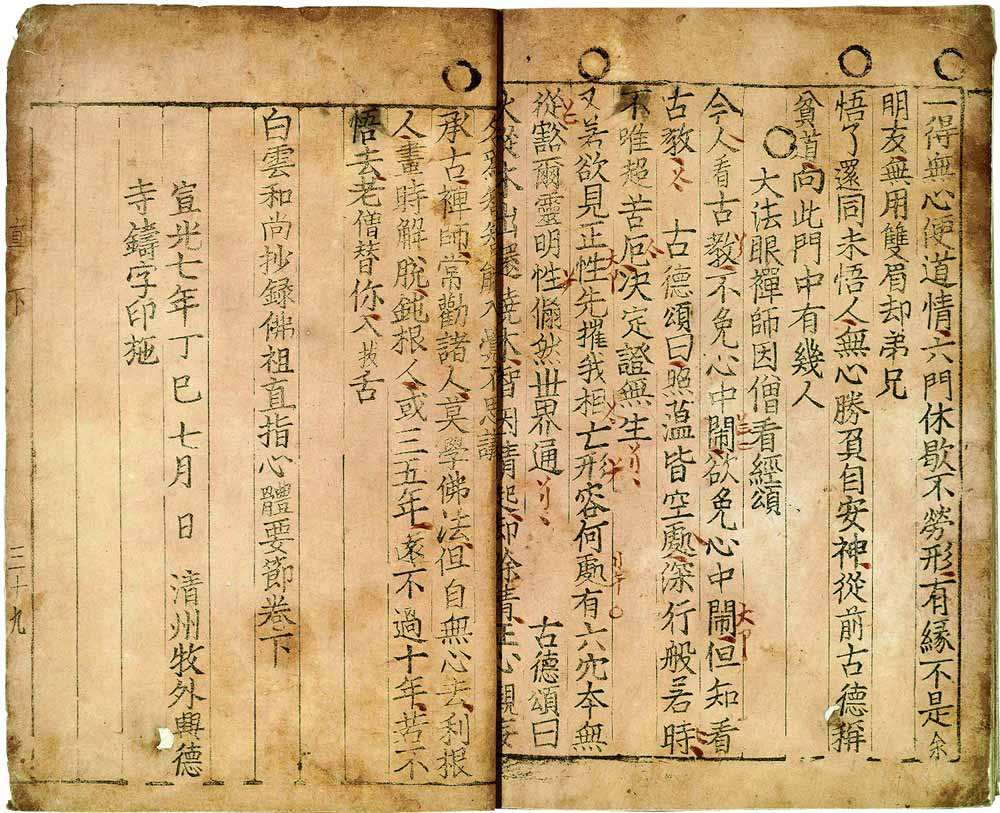 一得無心便道情六門休歇不勞形有緣不是余
明友無用雙眉却弟兄
悟了還同未悟人無心勝負自安神從前古德稱
貧道向此門中有幾人
大法眼禪師因僧看經頌
今人看古教不免心中鬧欲免心中鬧但知看
古教 古德頌曰照蘊皆空處深行般若時
不唯超苦厄决定證無生
又若欲見正性先摧我相亡形容何處有六穴本無
從豁爾靈明性翛然世界通 古德頌曰
火從木出還燒木智因情起却除情正心觀妄
能入覺不思議
承古禪師常勸諸人莫學佛法但自無心去利根
人晝時解脫鈍根人或三五年遠不過十年若不
悟去老僧替你入拔舌
白雲和尚抄録佛祖直指心體要節卷下
宣光七年丁巳七月 日 清州牧外興德
寺鑄字印施
直 下 三十九